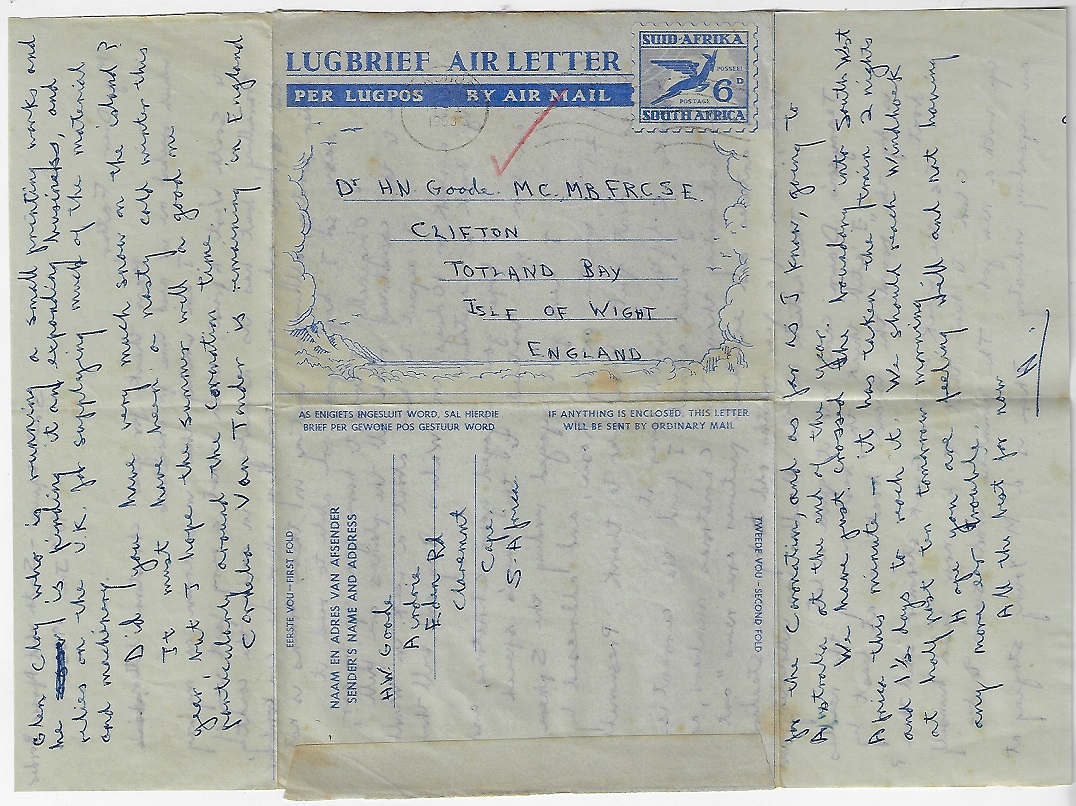 Glen Clay who is running a small printing works and
he is finding it an expanding business, and
relies on the U.K. for supplying much of the material
and machinery.
Did you have very much snow on the island?
It must have been a nasty cold winter this
year, but I hope the summer will a good one
particularly around the Coronation time.
Cornelia Van is remaining in England
LUGBRIEF AIR LETTER
PER LUGPOS BY AIR MAIL
SUID-AFRIKA
POSSEËL
6D
POSTAGE
SOUTH AFRICA
Dr HN. Goode. M.C. M.B. F.R.C.S.E.
CLIFTON
TOTLAND BAY
ISLE OF WIGHT
ENGLAND
AS ENIGIETS INGESLUIT WORD, SAL HIERDIE
BRIEF PER GEWONE POS GESTUUR WORD
IF ANYTHING IS ENCLOSED, THIS LETTER
WILL BE SENT BY ORDINARY MAIL
EERSTE VOU—FIRST FOLD
NAAM EN ADRES VAN AFSENDER
SENDER'S NAME AND ADDRESS
H.W. Goode
Rd
Claremont
Cape.
S. Africa
TWEEDE VOU—SECOND FOLD
for the Coronation, and as far as I know, going to
Australia at the end of the year.
We have just crossed the boundary into South West
Africa this minute — it has taken the train 2 nights
and 1½ days to reach it. We should reach Windhoek
at half past ten tomorrow morning.
Hope you are feeling well and not having
any more ear trouble.
All the best for now